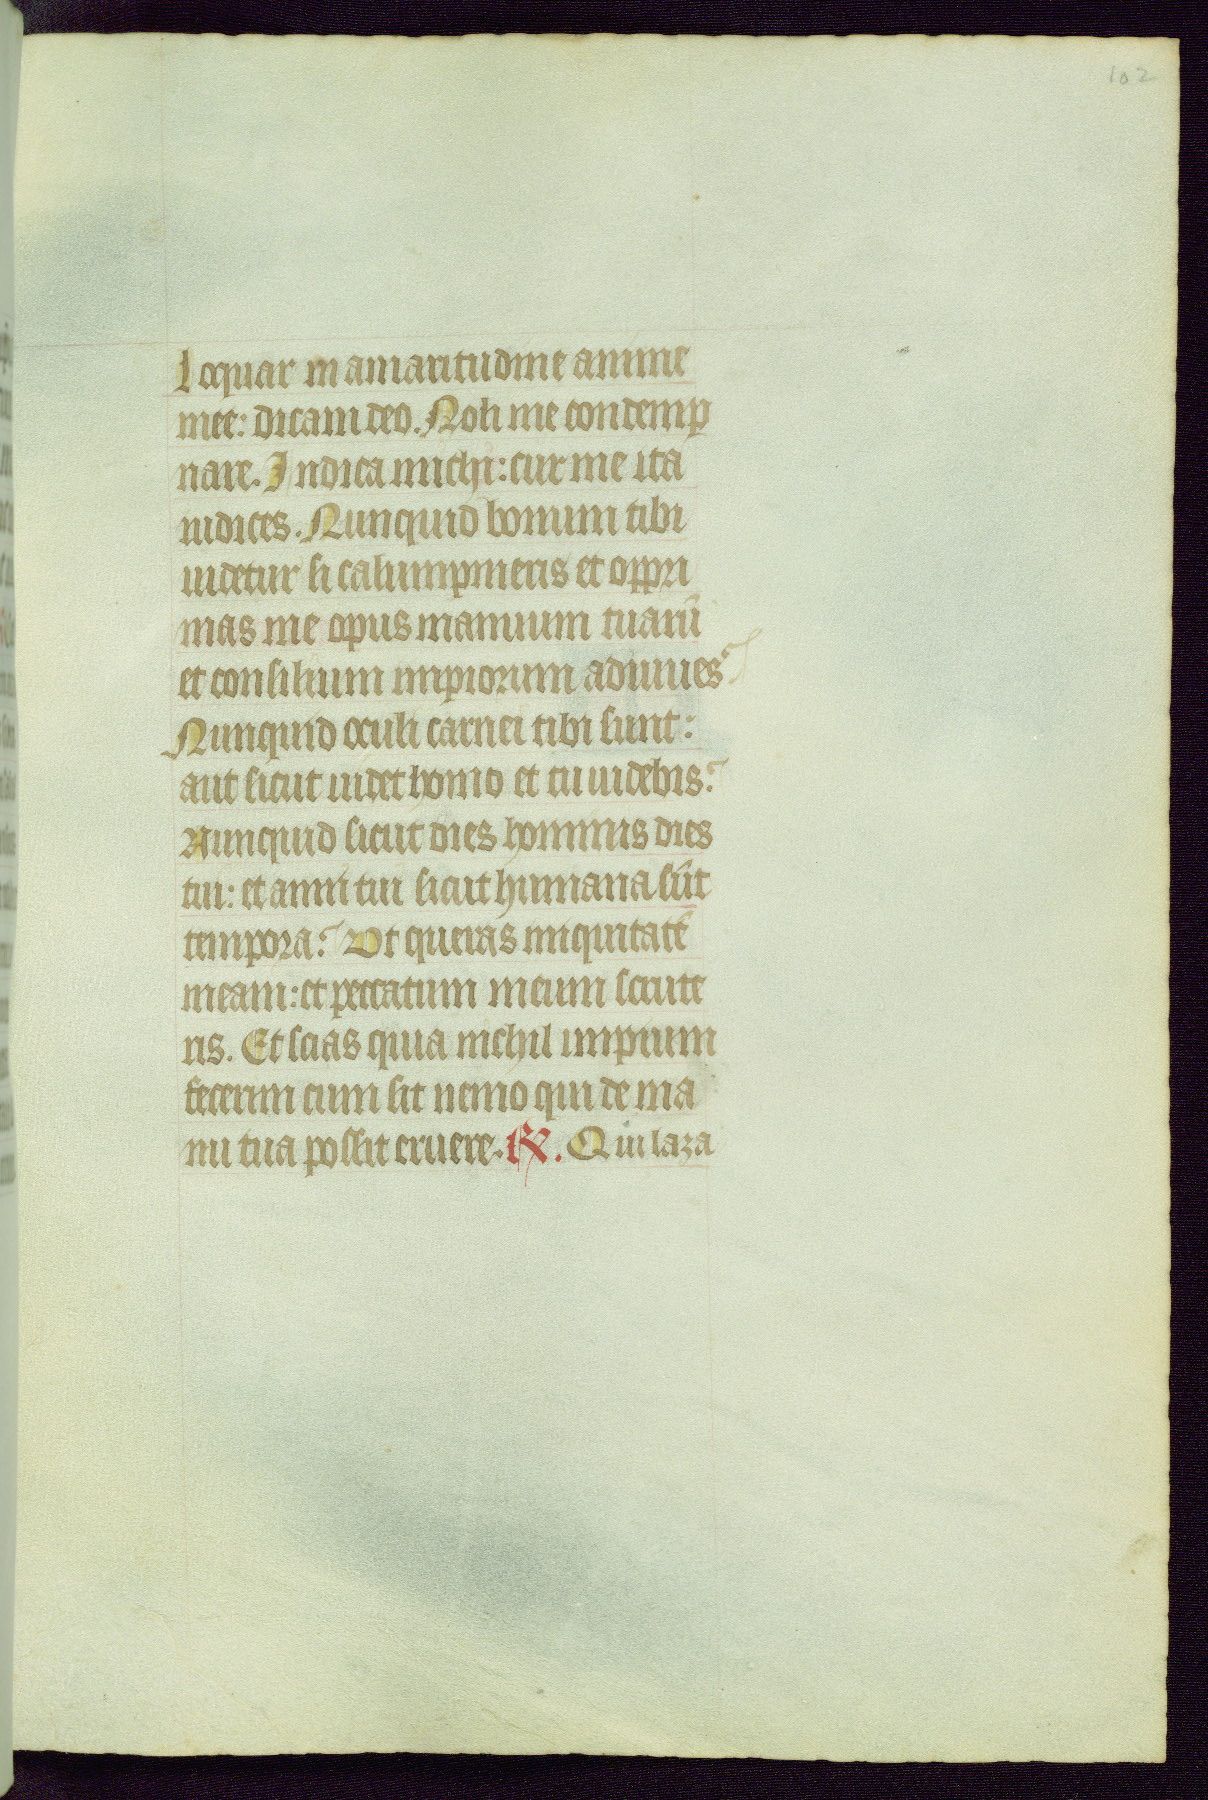 102
Loquar in amaritudine anime
mee: dicam deo. Noli me condemp
nare. Indica michi: cur me ita
iudices. Nunquid bonum tibi
uidetur si calumpnieris et oppri
mas me opus manuum tuarū
et consilium impiorum adiuues?
Nunquid oculi carnei tibi sunt:
aut sicut uidet homo et tu uidebis?
Nunquid sicut dies hominis dies
tui: et anni tui sicut humana sūt
tempora? Ut queras iniquitatē
meam: et peccatum meum scrute
ris. Et scias quia nichil impium
fecerim cum sit nemo qui de ma
nu tua possit eruere. ℟. Qui laza